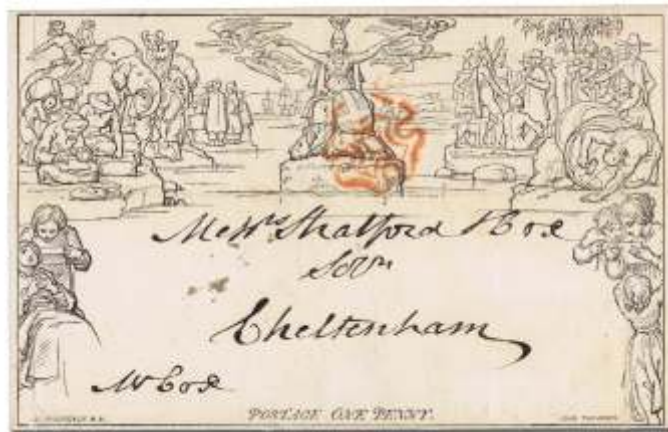 Messrs. Stratford & Cox
Solrs
Cheltenham
Mr Cox
POSTAGE ONE PENNY.